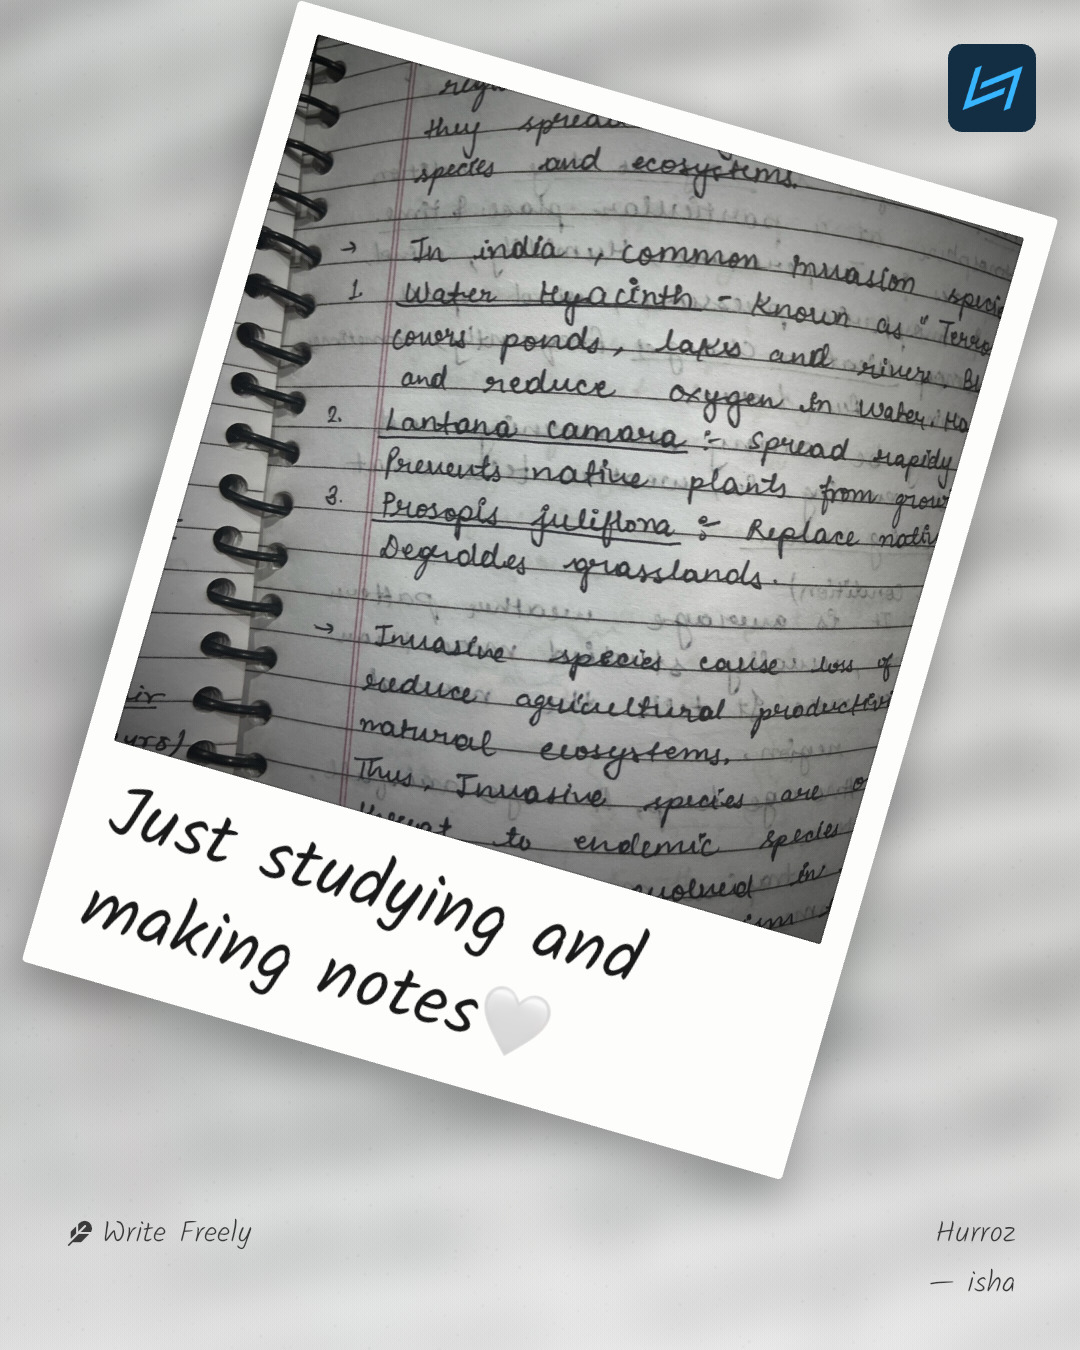 they spread
species and ecosystems.
→ In india , common Invasion speci
1. Water Hyacinth - Known as "Terro
covers ponds, lakes and rivers. Bl
and reduce oxygen in water. Ha
2. Lantana camara :- Spread rapidy
Prevents native plants from grow
3. Prosopis juliflora :- Replace nativ
Degrddes grasslands.
→ Invasive species cause loss of
reduce agricultural productivi
natural ecosystems.
Thus, Invasive species are
threat to endemic species
involved in
ir
Just studying and
making notes🤍
Write Freely
Hurroz
— isha